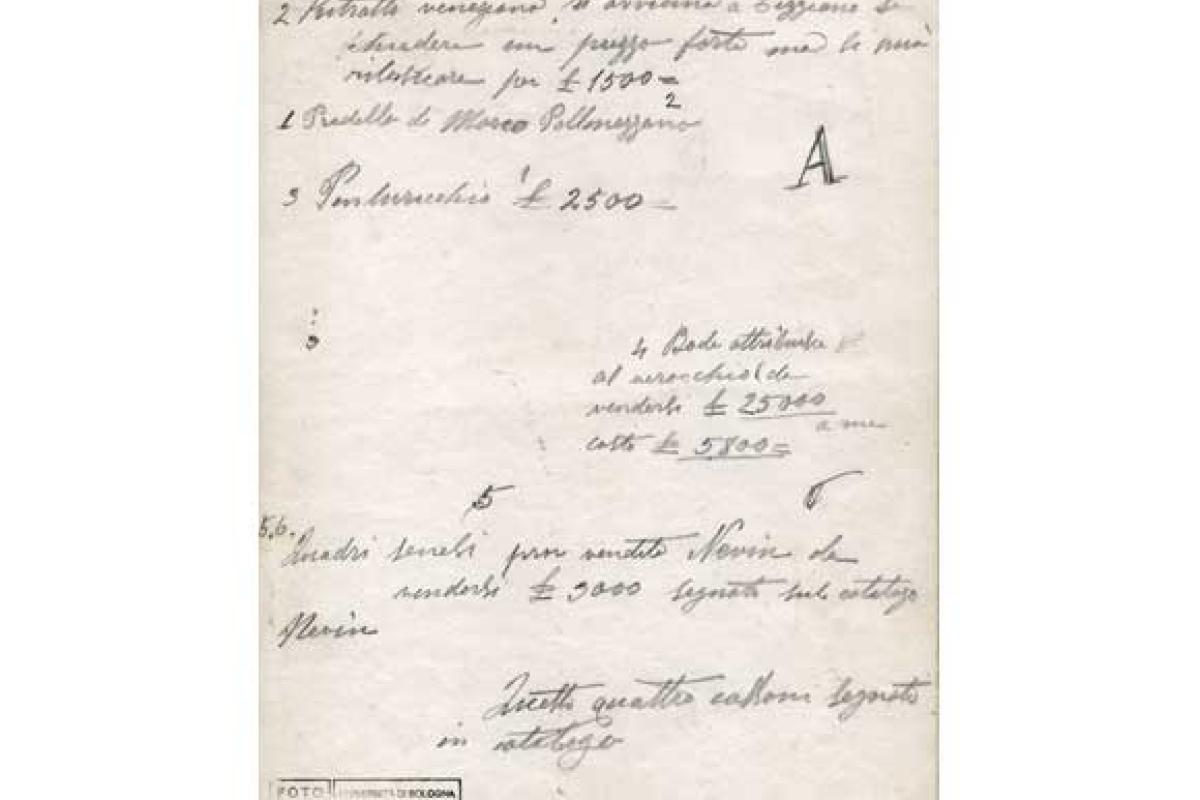 2 Ritratto veneziano, si avvicina a Tiziano si
chiedere un prezzo forte ma lo può
rilasciare per £ 1500=
2
1 Predella di Marco Palmezzano
A
3 Pinturicchio £ 2500=
3
4 Bode attribuita
al verocchio da
vendersi £ 25000
a me
costò £ 5800=
5 6
5,6. Quadri senesi pro vendita Nevin da
vendersi £ 3000 segnato sul catalogo
Nevin
quattro cassoni segnato
in catalogo
FOTO UNIVERSITÀ DI BOLOGNA